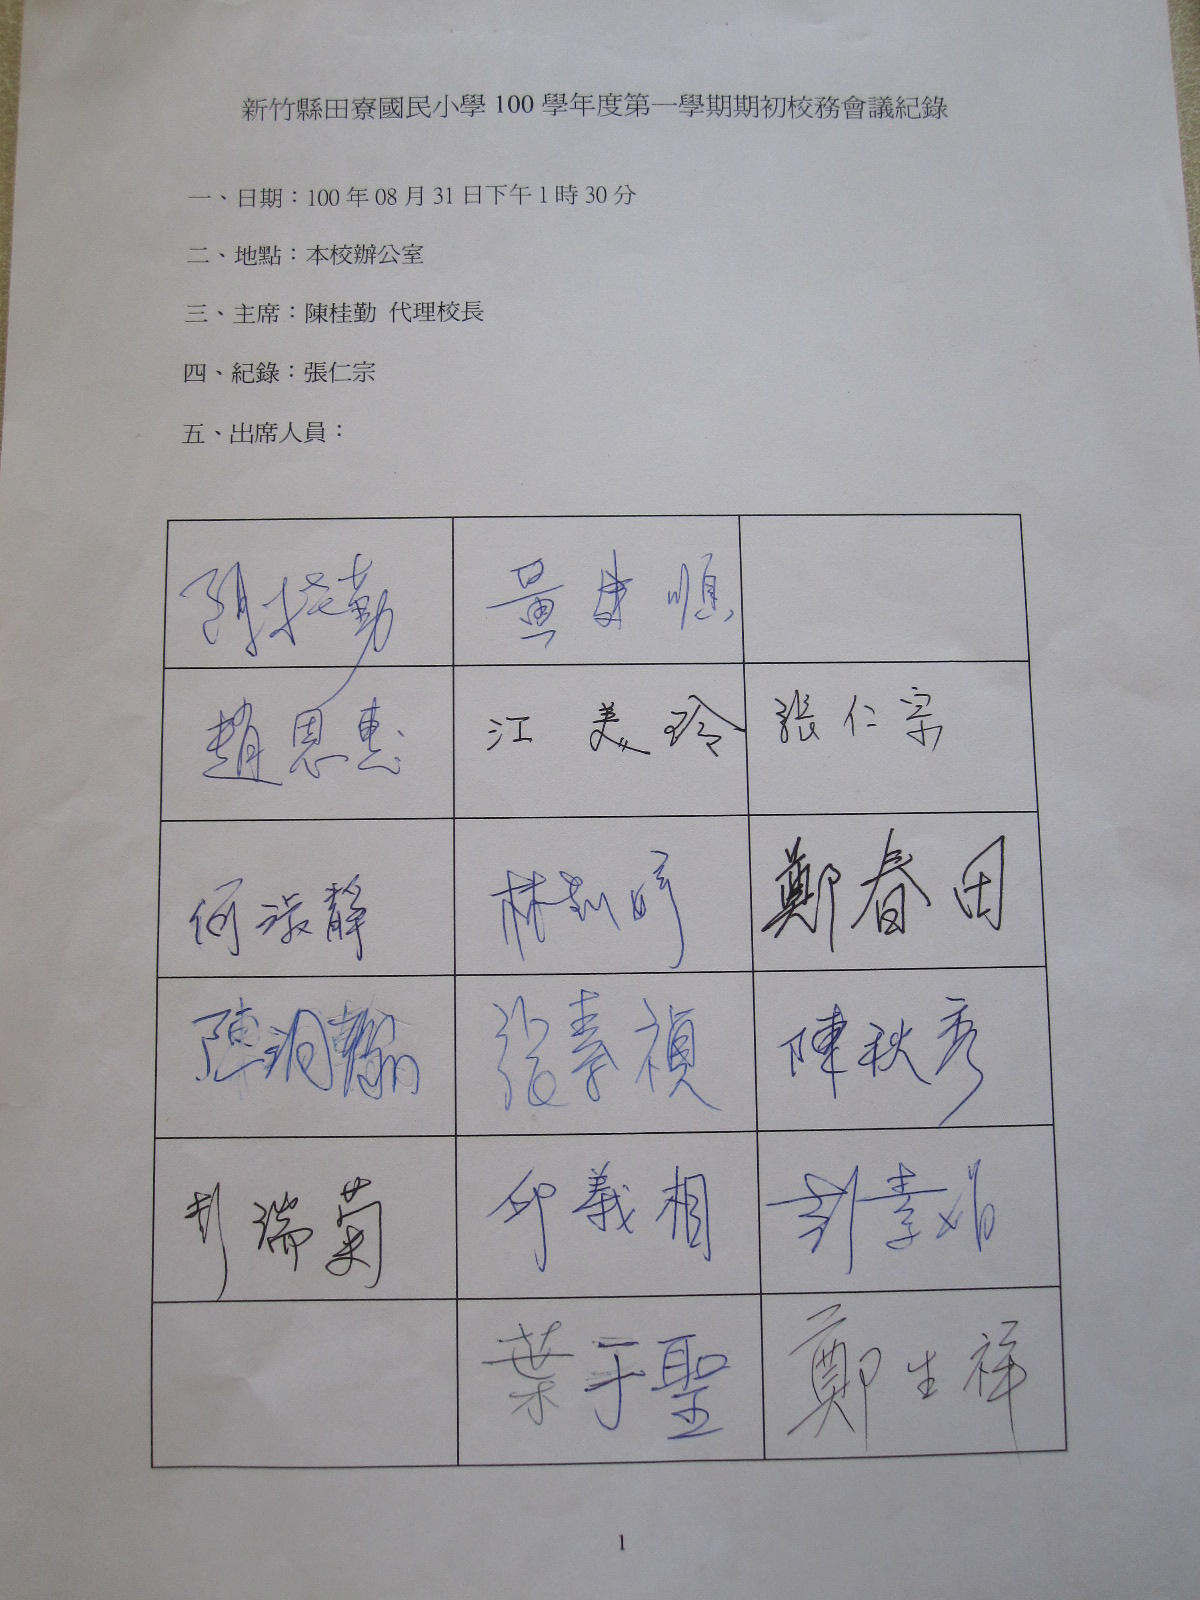 新竹縣田寮國民小學 100 學年度第一學期期初校務會議紀錄
一、日期：100 年 08 月 31 日下午 1 時 30 分
二、地點：本校辦公室
三、主席：陳桂勤 代理校長
四、紀錄：張仁宗
五、出席人員：
陳桂勤 黃 順
趙恩惠 江美玲 張仁宗
何淑靜 林莉婷 鄭春田
陳 張素禎 陳秋秀
彭瑞菊 邱義相 劉素娟
葉于聖 鄭生祥
1